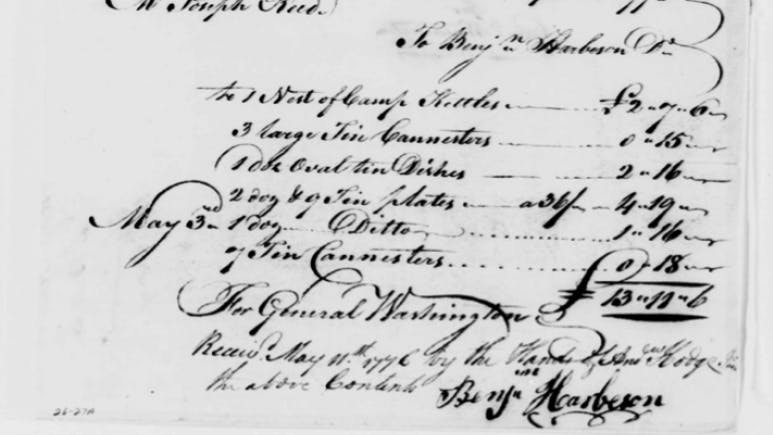 Mr Joseph Reed
To Benjn Harbeson Dr
to 1 Nest of Camp Kettles £2 " 7 " 6
3 large Tin Cannesters 0 " 15 "
1 doz Oval tin Dishes 2 " 16 "
2 doz & 9 Tin plates a 36/ 4 " 19 "
May 3rd 1 doz Ditto 1 " 16 "
Tin Cannesters 0 " 18 "
For General Washington £ 13 " 11 " 6
Receivd May 11th 1776 by the Hands of Andw Hodge Jr
the above Contents
Benjn Harbeson
26-27A